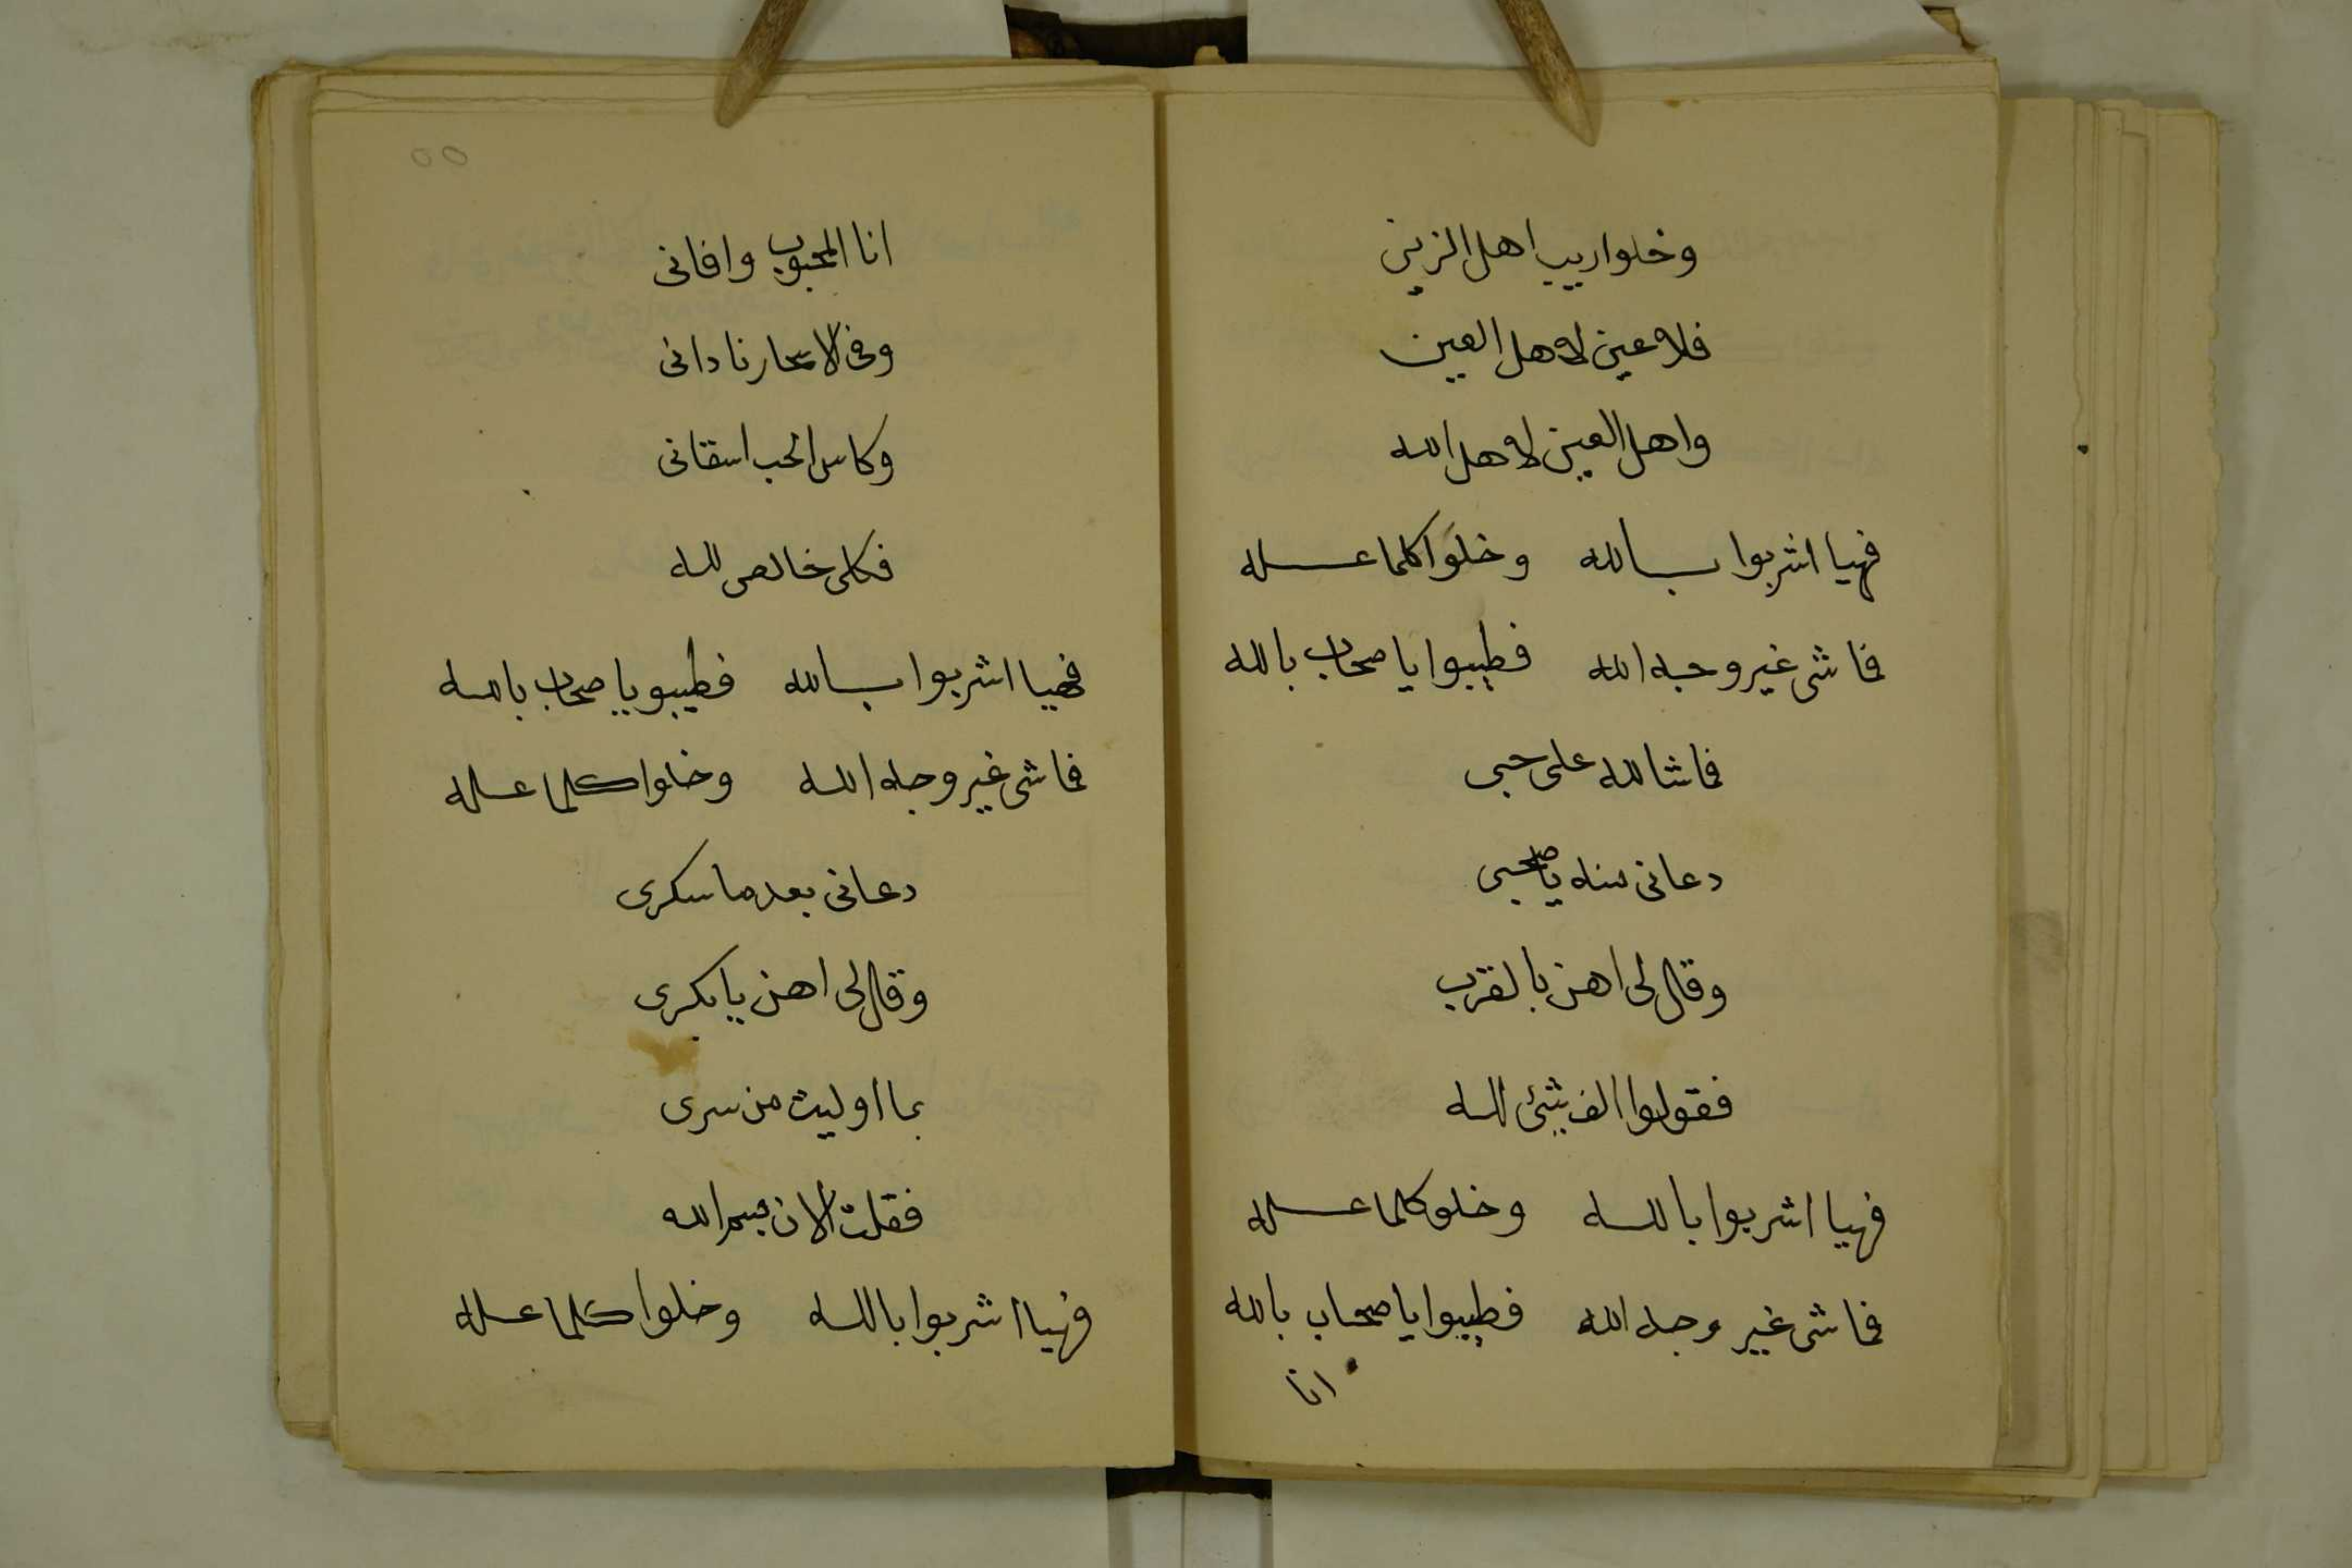 وخلوا ريب اهل الزين
فلا عين لاهل العين
واهل العين لاهل الله
فهيا اشربوا بالله وخلوا كلما عله
فما شى غير وجه الله فطيبوا يا صحاب بالله
فما شا لله على حبى
دعانى منه يا صحبى
وقال لى اهن بالقرب
فقولوا الف شىء لله
فهيا اشربوا بالله وخلو كلما عله
فما شى غير وجه الله فطيبوا يا صحاب بالله
انا
٥٥
انا المحبوب وافانى
وفى الاسحار نادانى
وكاس الحب اسقانى
فكلى خالص لله
فهيا اشربوا بالله فطيبو يا صحاب بالله
فما شى غير وجه الله وخلوا كلما عله
دعانى بعد ما سكرى
وقال لى اهن يا بكرى
بما اوليت من سرى
فقلت الان بسم الله
فهيا اشربوا بالله وخلوا كلما عله